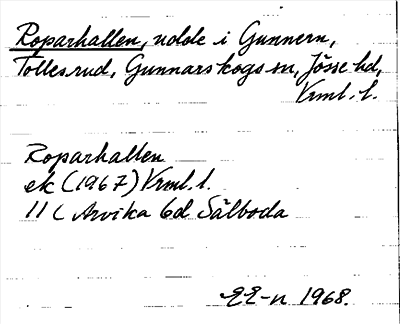 Roparhallen, udde i Gunnern,
Tollesrud, Gunnarskogs sn, Jösse hd,
Vrml. l.
Roparhallen
ek (1967) Vrml. l.
11 C Arvika 6d Sälboda
EE-n 1968.